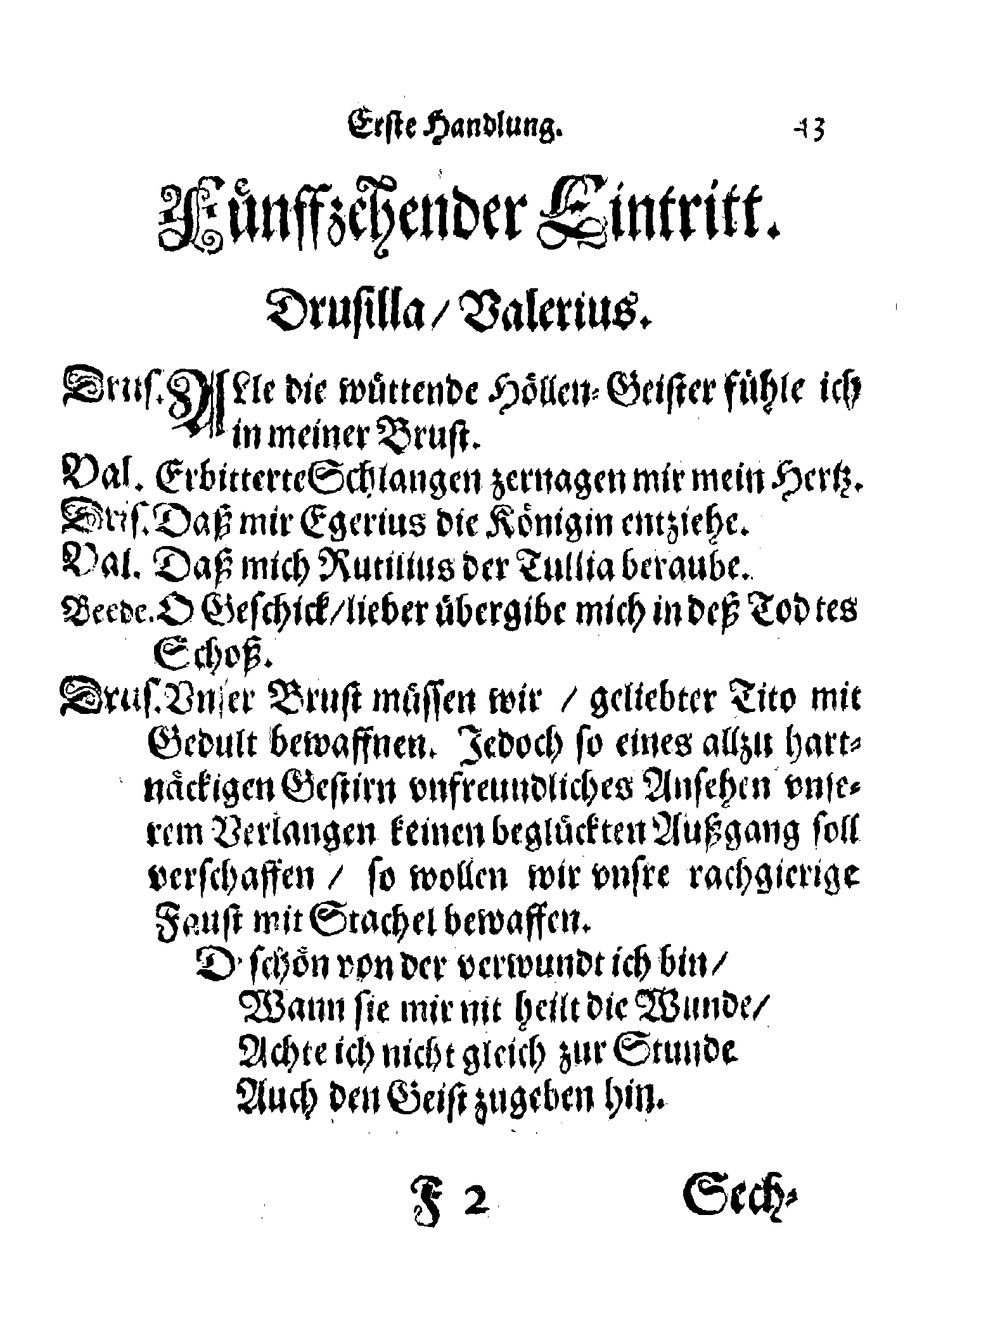 Erste Handlung. 43
Fünffzehender Eintritt.
Drusilla/ Valerius.
Drus. ALle die wüttende Höllen-Geister fühle ich
in meiner Brust.
Val. Erbitterte Schlangen zernagen mir mein Hertz.
Drus. Daß mir Egerius die Königin entziehe.
Val. Daß mich Rutilius der Tullia beraube.
Beede. O Geschick/lieber übergibe mich in deß Todtes
Schoß.
Drus. Vnser Brust müssen wir / geliebter Tito mit
Gedult bewaffnen. Jedoch so eines allzu hart-
näckigen Gestirn vnfreundliches Ansehen vnse-
rem Verlangen keinen beglückten Außgang soll
verschaffen / so wollen wir vnsre rachgierige
Faust mit Stachel bewaffen.
O schön von der verwundt ich bin/
Wann sie mir nit heilt die Wunde/
Achte ich nicht gleich zur Stunde
Auch den Geist zugeben hin.
F 2 Sech-